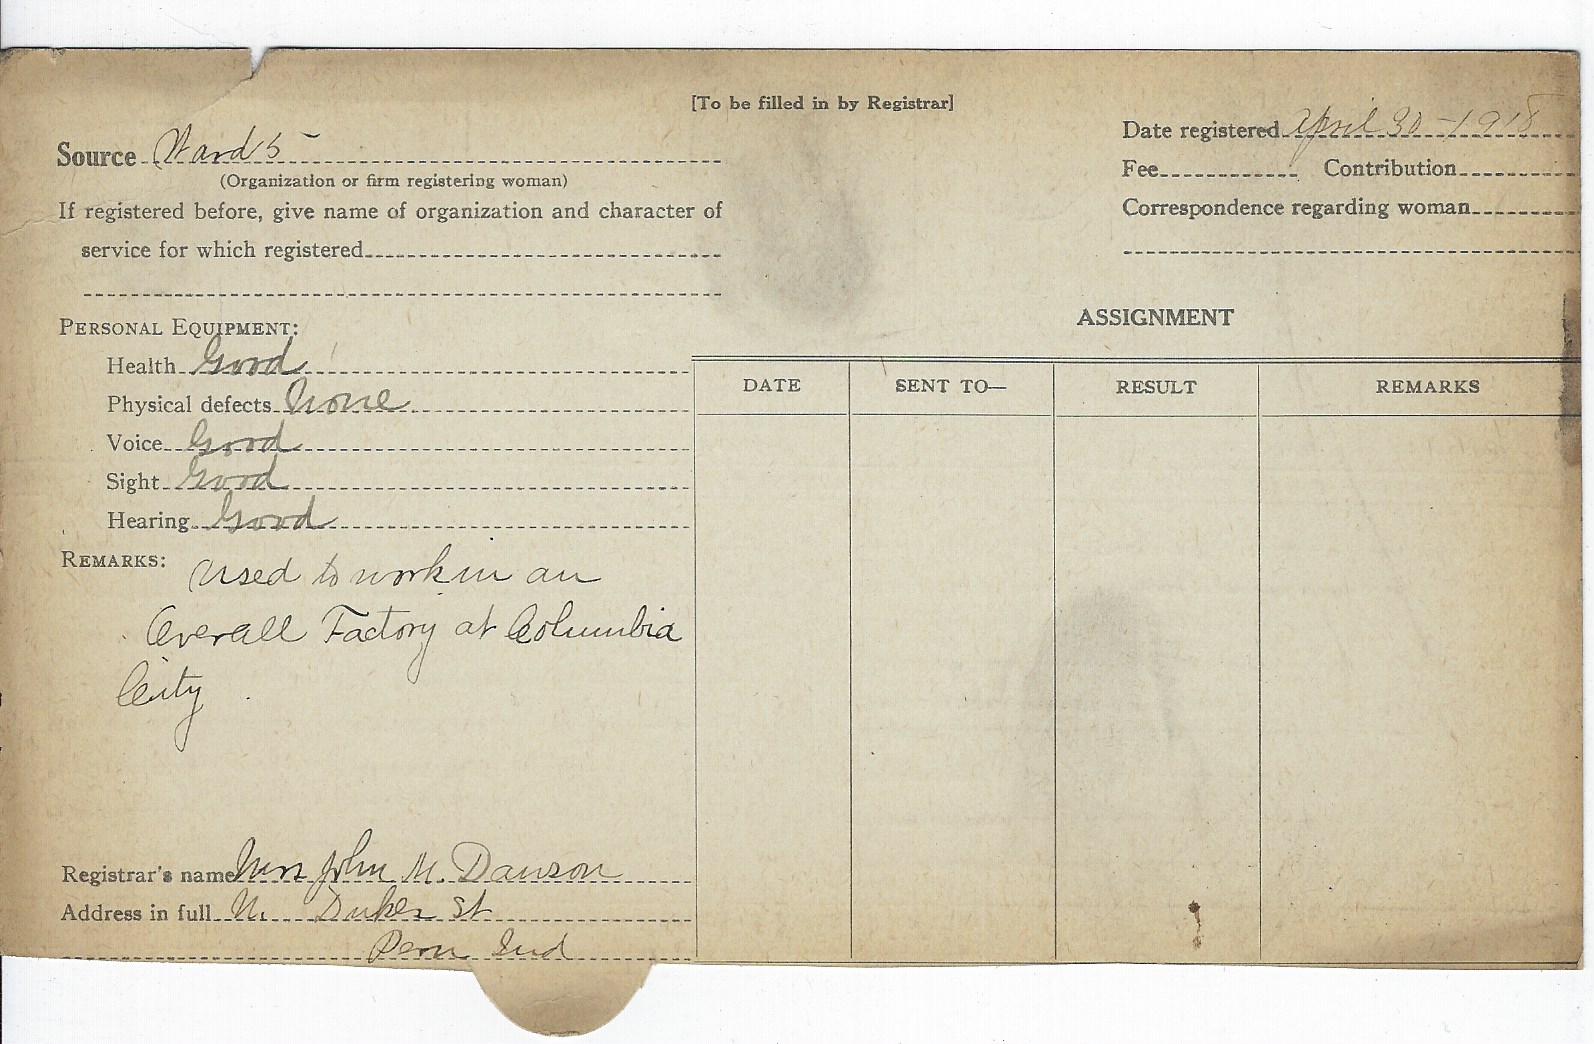 [To be filled in by Registrar]
Source Ward 5
(Organization or firm registering woman)
If registered before, give name of organization and character of
service for which registered
Date registered April 30-1918
Fee Contribution
Correspondence regarding woman
PERSONAL EQUIPMENT:
Health Good
Physical defects None
Voice Good
Sight Good
Hearing Good
REMARKS: Used to work in an
Overall Factory at Columbia
City.
Registrar's name Mrs John M. Dawson
Address in full N. Dukes St
Peru Ind
ASSIGNMENT
DATE SENT TO— RESULT REMARKS